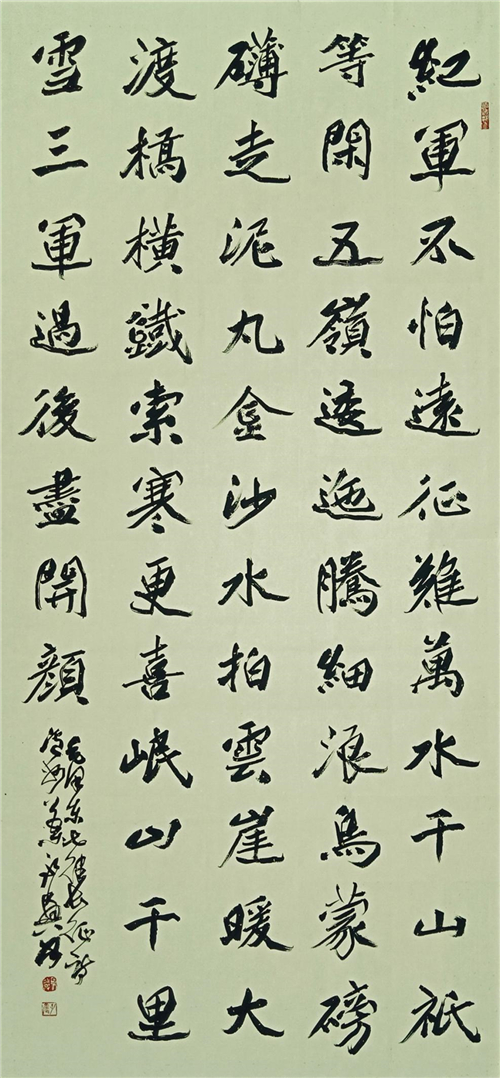 紅軍不怕遠征難萬水千山祇
等閑五嶺逶迤騰細浪烏蒙磅
礴走泥丸金沙水拍雲崖暖大
渡橋橫鐵索寒更喜岷山千里
雪三軍過後盡開顏
毛澤東七律長征詩